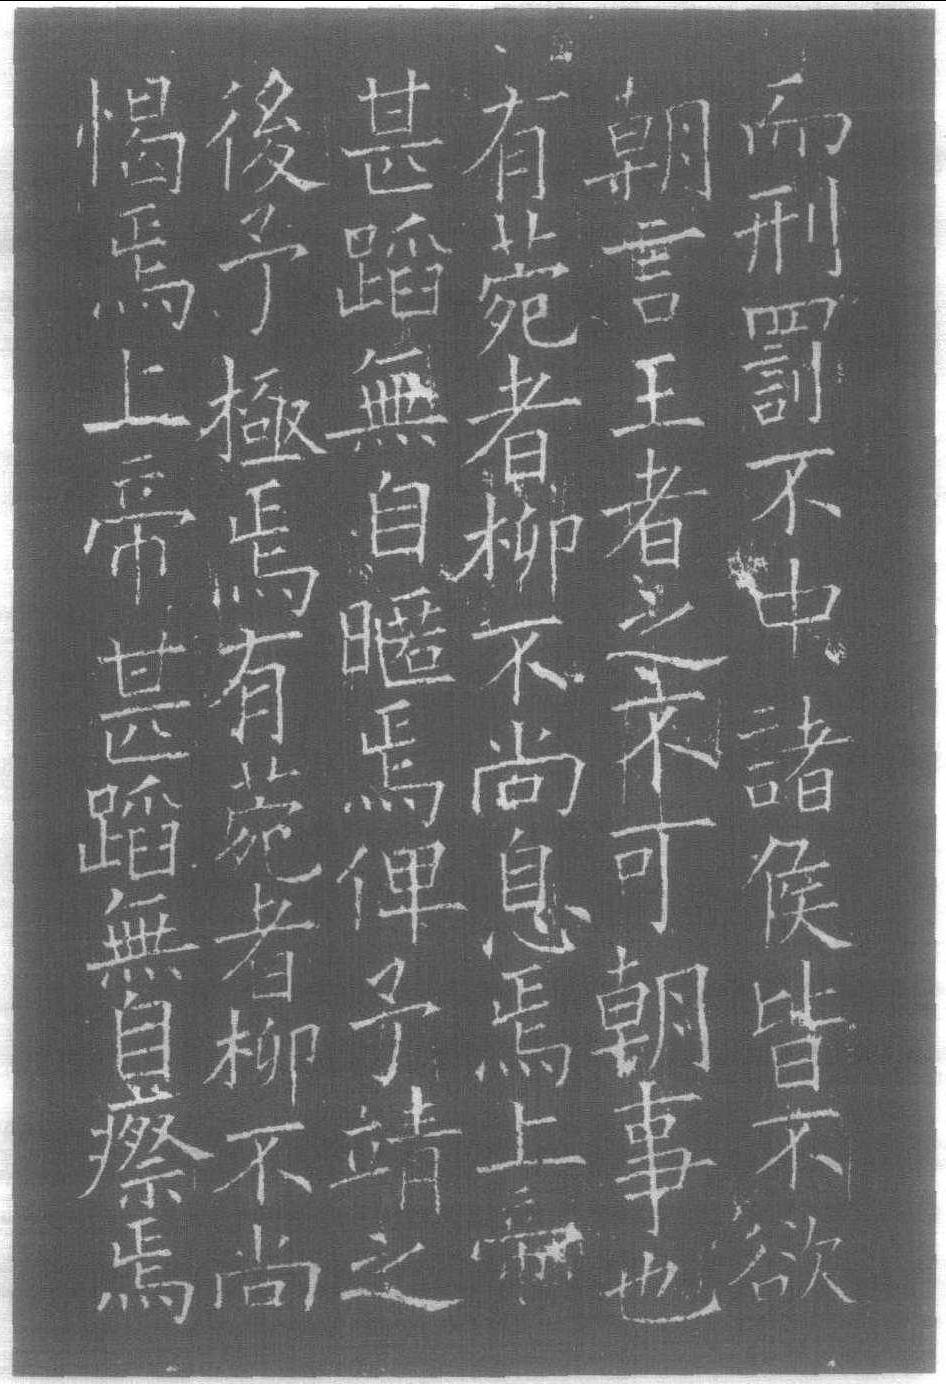 而刑罰不中諸侯皆不欲
朝言王者之不可朝事也
有菀者柳不尚息焉上帝
甚蹈無自暱焉俾予靖之
後予極焉有菀者柳不尚
愒焉上帝甚蹈無自瘵焉